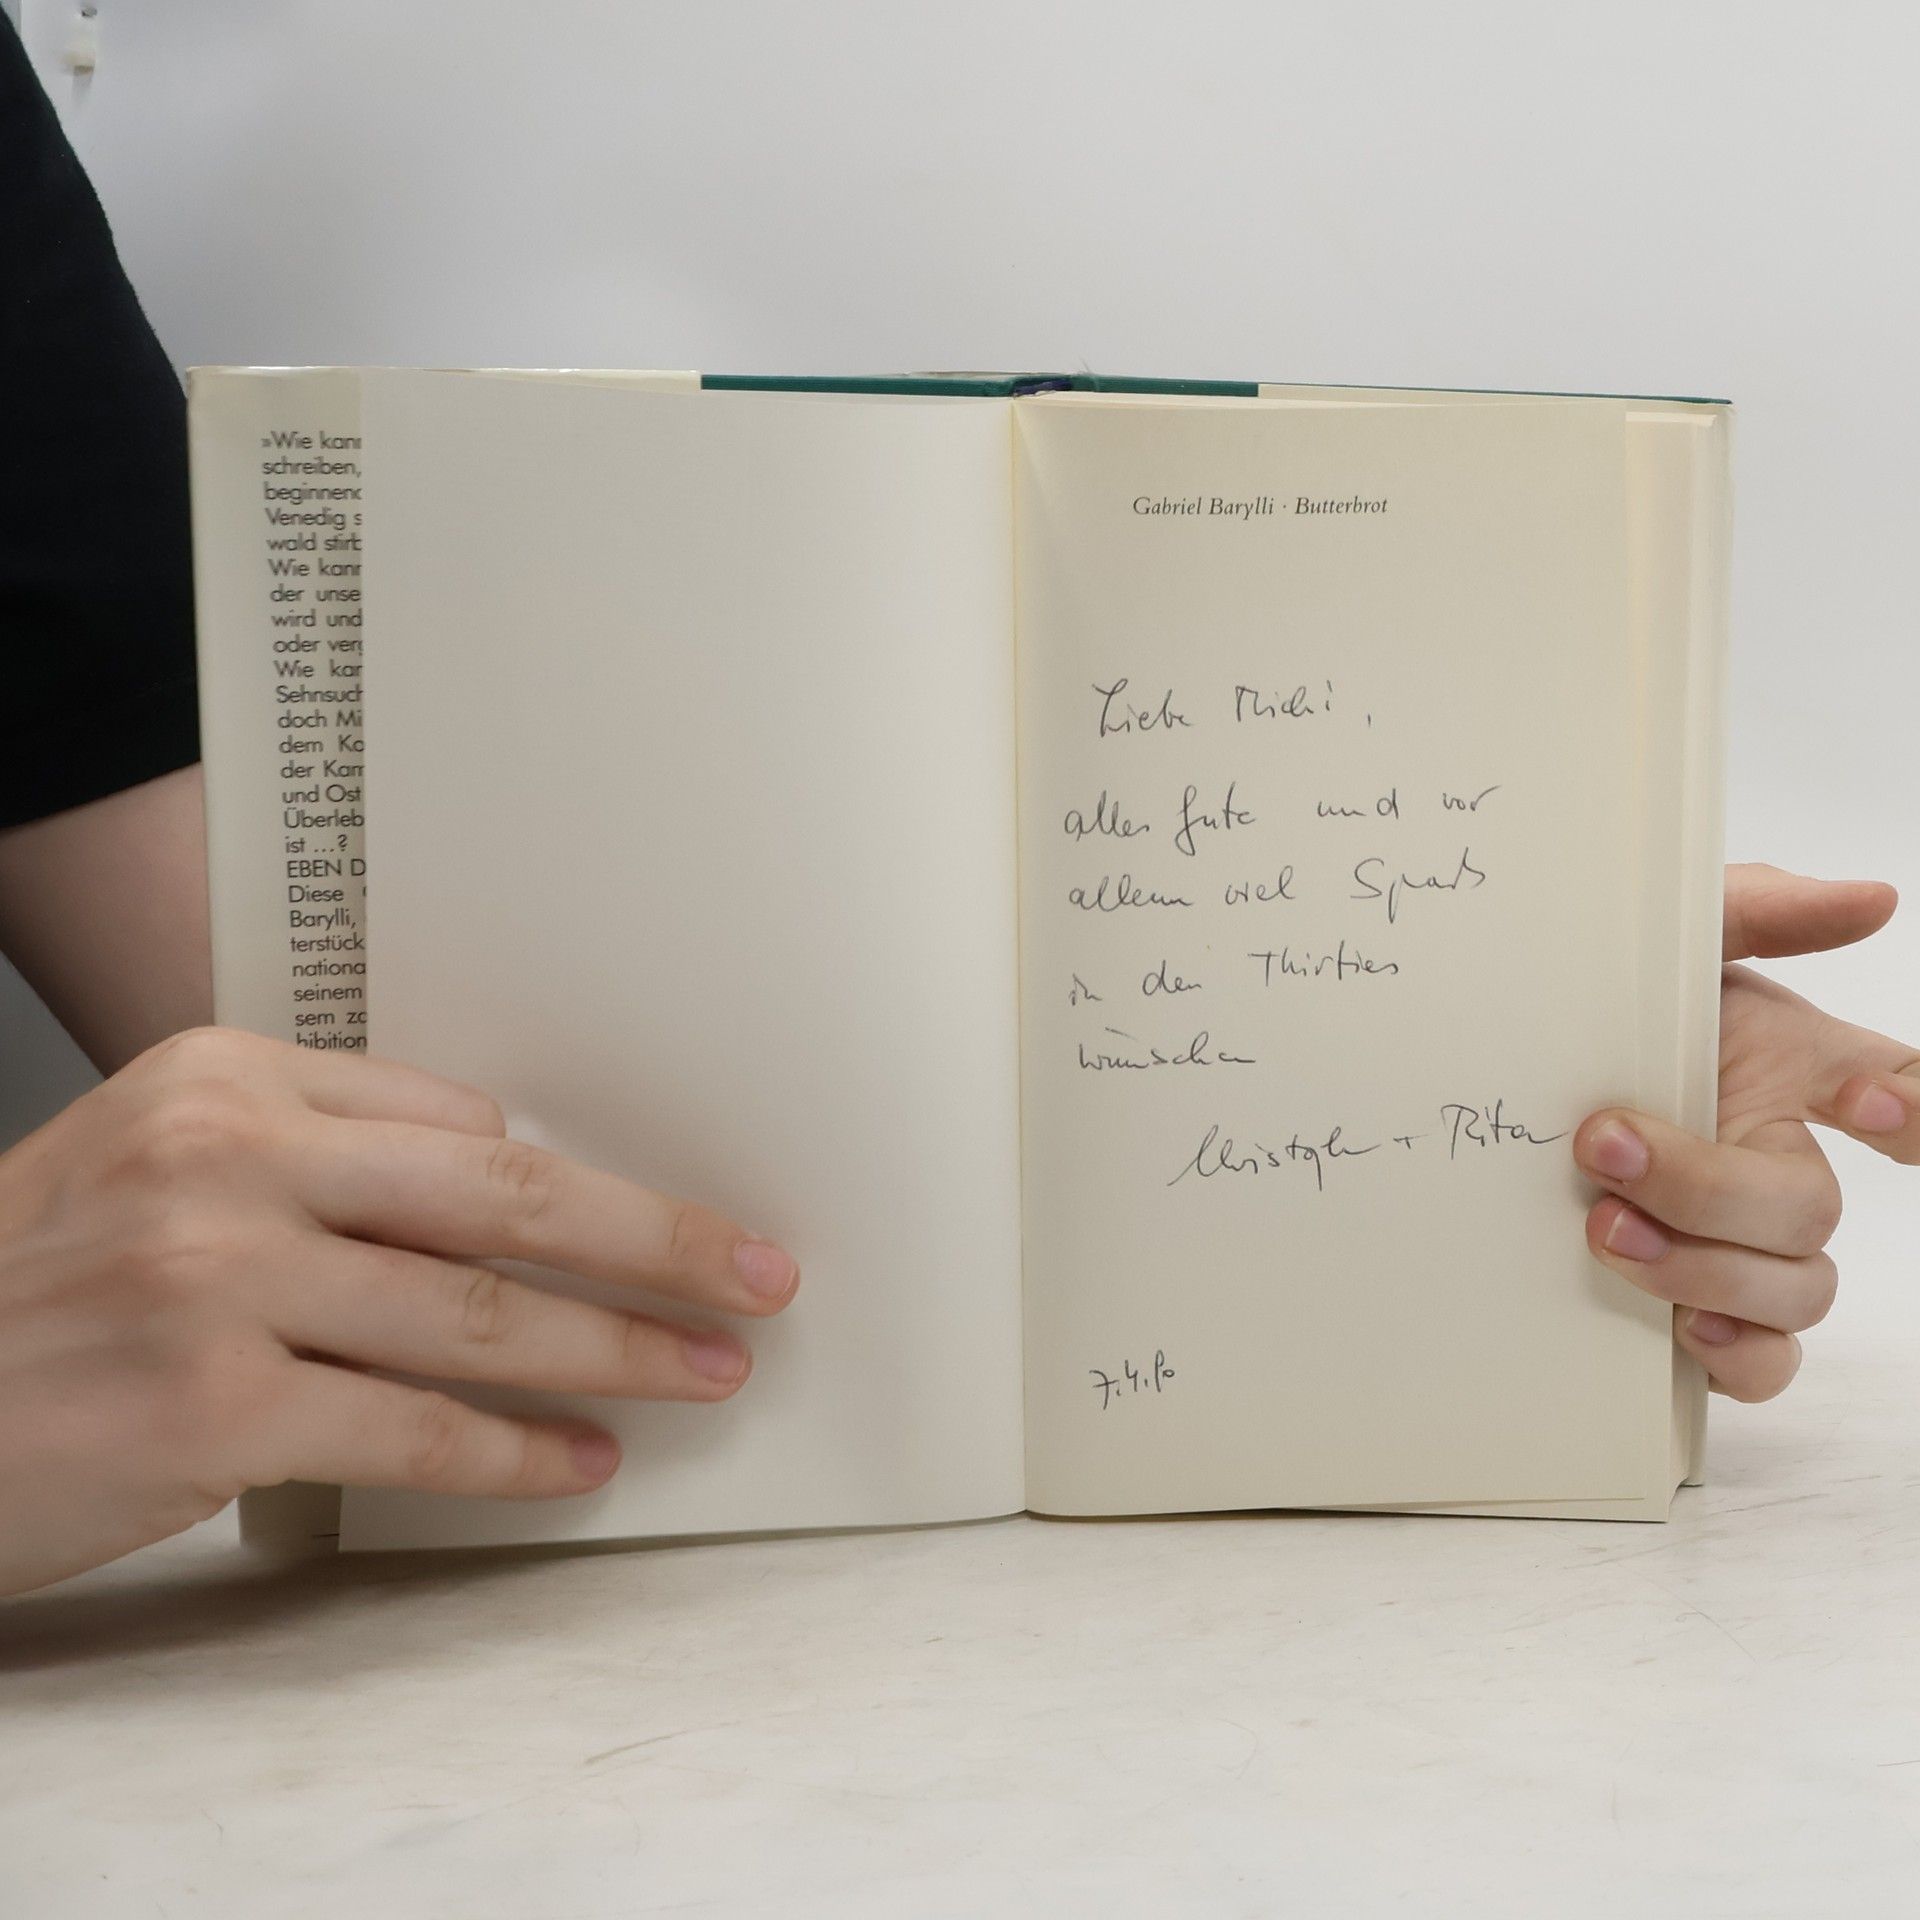 »Wie kann
schreiben,
beginnend
Venedig s
wald stirb
Wie kann
der unse
wird und
oder verg
Wie kan
Sehnsuch
doch Mi
dem Ko
der Kam
und Ost
Überleb
ist ...?
EBEN D
Diese
Barylli,
terstück
nationa
seinem
sem zo
hibition
Gabriel Barylli · Butterbrot
Liebe Michi,
alles Gute und vor
allem viel Spaß
in den Thirties
wünschen
Christoph + Rita
7.4.90